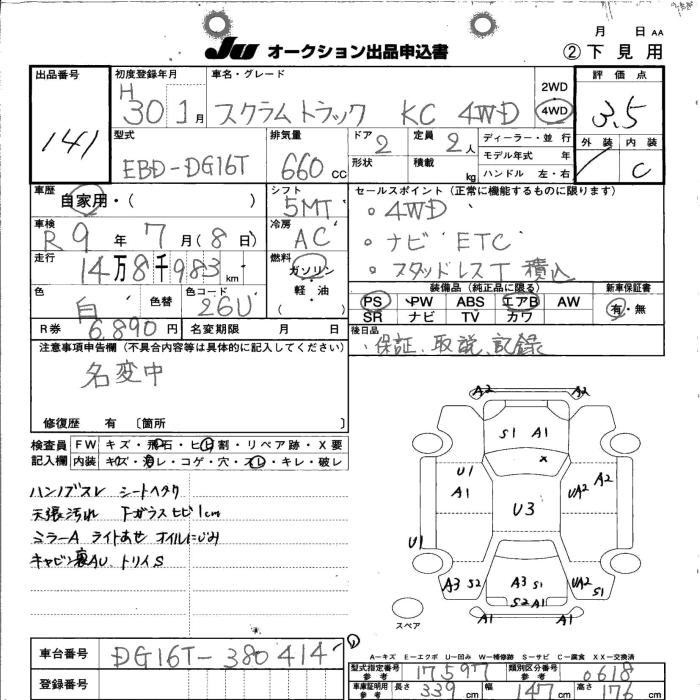 月 日 AA
JU オークション出品申込書 ②下見用
出品番号 初度登録年月 車名・グレード 2WD 評価点
141 H30 1月 スクラムトラック KC 4WD 4WD 3.5
型式 排気量 ドア 2 定員 2人 ディーラー・並行 外装 内装
EBD-DG16T 660cc 形状 積載 kg モデル年式 年 C
ハンドル 左・右
車歴 シフト セールスポイント(正常に機能するものに限ります)
自家用・( ) 5MT 。4WD
車検 冷房 。ナビ ETC
R9年 7月(8日) AC 。スタッドレスT 積込
走行 燃料
14万8千983km ガソリン 装備品(純正品に限る) 新車保証書
色 色替 色コード 軽・油 PS PW ABS エアB AW 有・無
白 26U ( ) SR ナビ TV カワ
R券 6,890円 名変期限 月 日 後日品
注意事項申告欄(不具合内容等は具体的に記入してください) ・保証、取説、記録
名変中
修復歴 有 〔箇所 〕
検査員 FW キズ・飛石・ヒビ割・リペア跡・X要
記入欄 内装 キズ・汚レ・コゲ・穴・スレ・キレ・破レ
ハンノブスレ シートヘタリ
天張汚れ Fガラスヒビ1cm
ミラーA ライトあせ オイルにじみ
キャビン裏AU トリイS
A2 A2
S1 A1
x
U1 A2
A1 UA2
U3
U1
A3 S2 A3 S1 UA2
S2 A1 S1
A1 A1
スペア
A-キズ E-エクボ U-凹み W-補修跡 S-サビ C-腐食 XX-交換済
車台番号 DG16T-380414
型式指定番号 参考 17597 類別区分番号 参考 0618
登録番号
車庫証明用 参考 長さ 339cm 幅 147cm 高さ 176cm